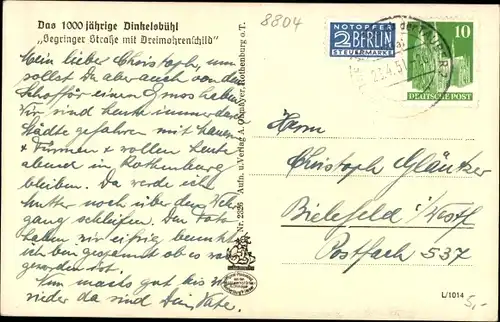 Das 1000 jährige Dinkelsbühl
„Segringer Straße mit Dreimohrenschild"
8804
NOTOPFER
2 BERLIN
STEUERMARKE
10
DEUTSCHE POST
23.4.51
Mein lieber Christoph, nun
sollst Du aber auch von der
einen Gruss haben
Wir sind heute immer durch
Städte gefahren mit
+ Türmen + wollen heute
abend in Rothenburg
bleiben. Da werde ich
Mutter noch über den
gang schleifen. Den Foto
haben wir eifrig benutzt
ich bin gespannt ob es was
geworden ist.
Nun machs gut bis
wieder da sind Dein Vater.
Nr. 2326 Aufn. u. Verlag A. Ohmayer, Rothenburg o. T.
Herrn
Christoph Gläntzer
Bielefeld i/Westf
Postfach 537
L/1014
5,-